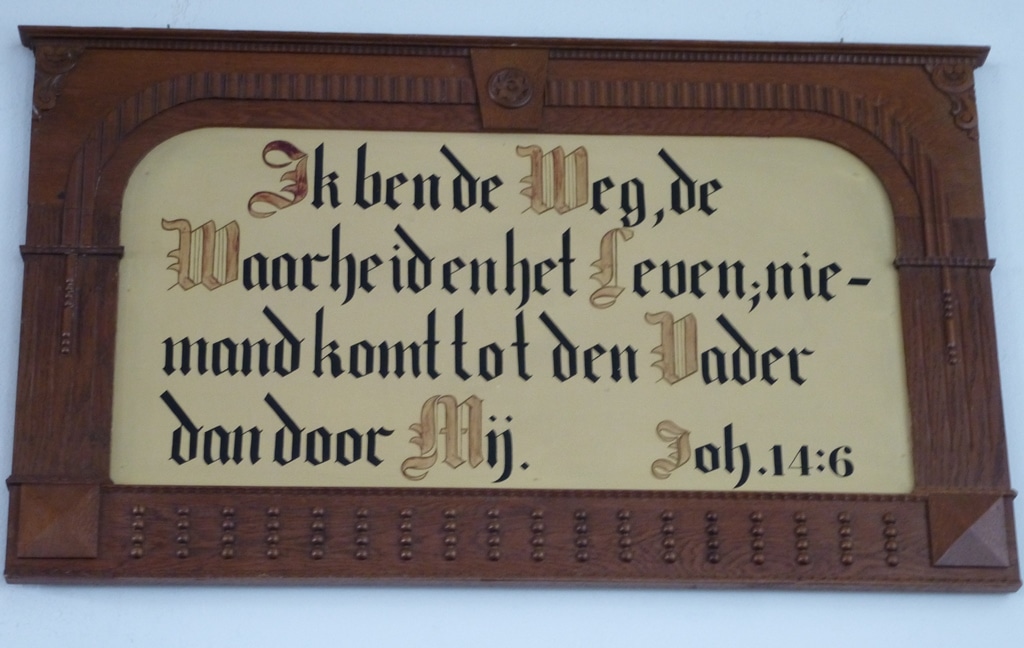 Ik ben de Weg, de
Waarheid en het Leven; nie-
mand komt tot den Vader
dan door Mij. Joh. 14:6